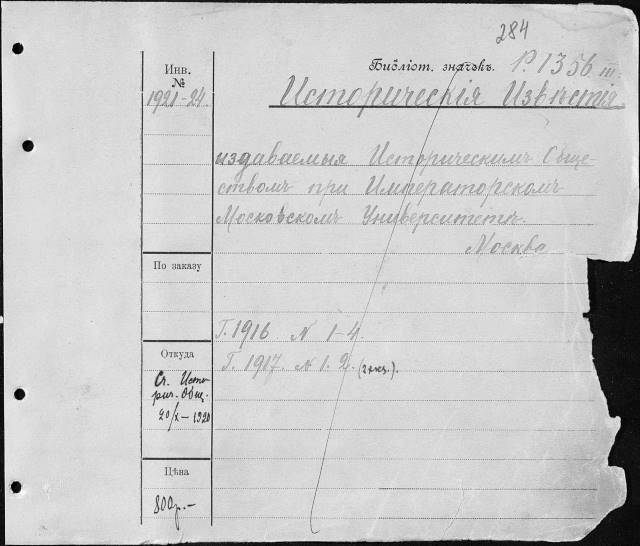 284
Библіот. значекъ. Р. 1356 III.
Инв.
№
1921-24.
Историческія Извѣстія
издаваемыя Историческимъ Обще-
ствомъ при Императорскомъ
Московскомъ Университетѣ.
Москва
По заказу
Г. 1916 N 1-4.
Г. 1917. N 1. 2. (2 экз.).
Откуда
Исто
рич. Общ.
20/X - 1920
Цѣна
800р.-